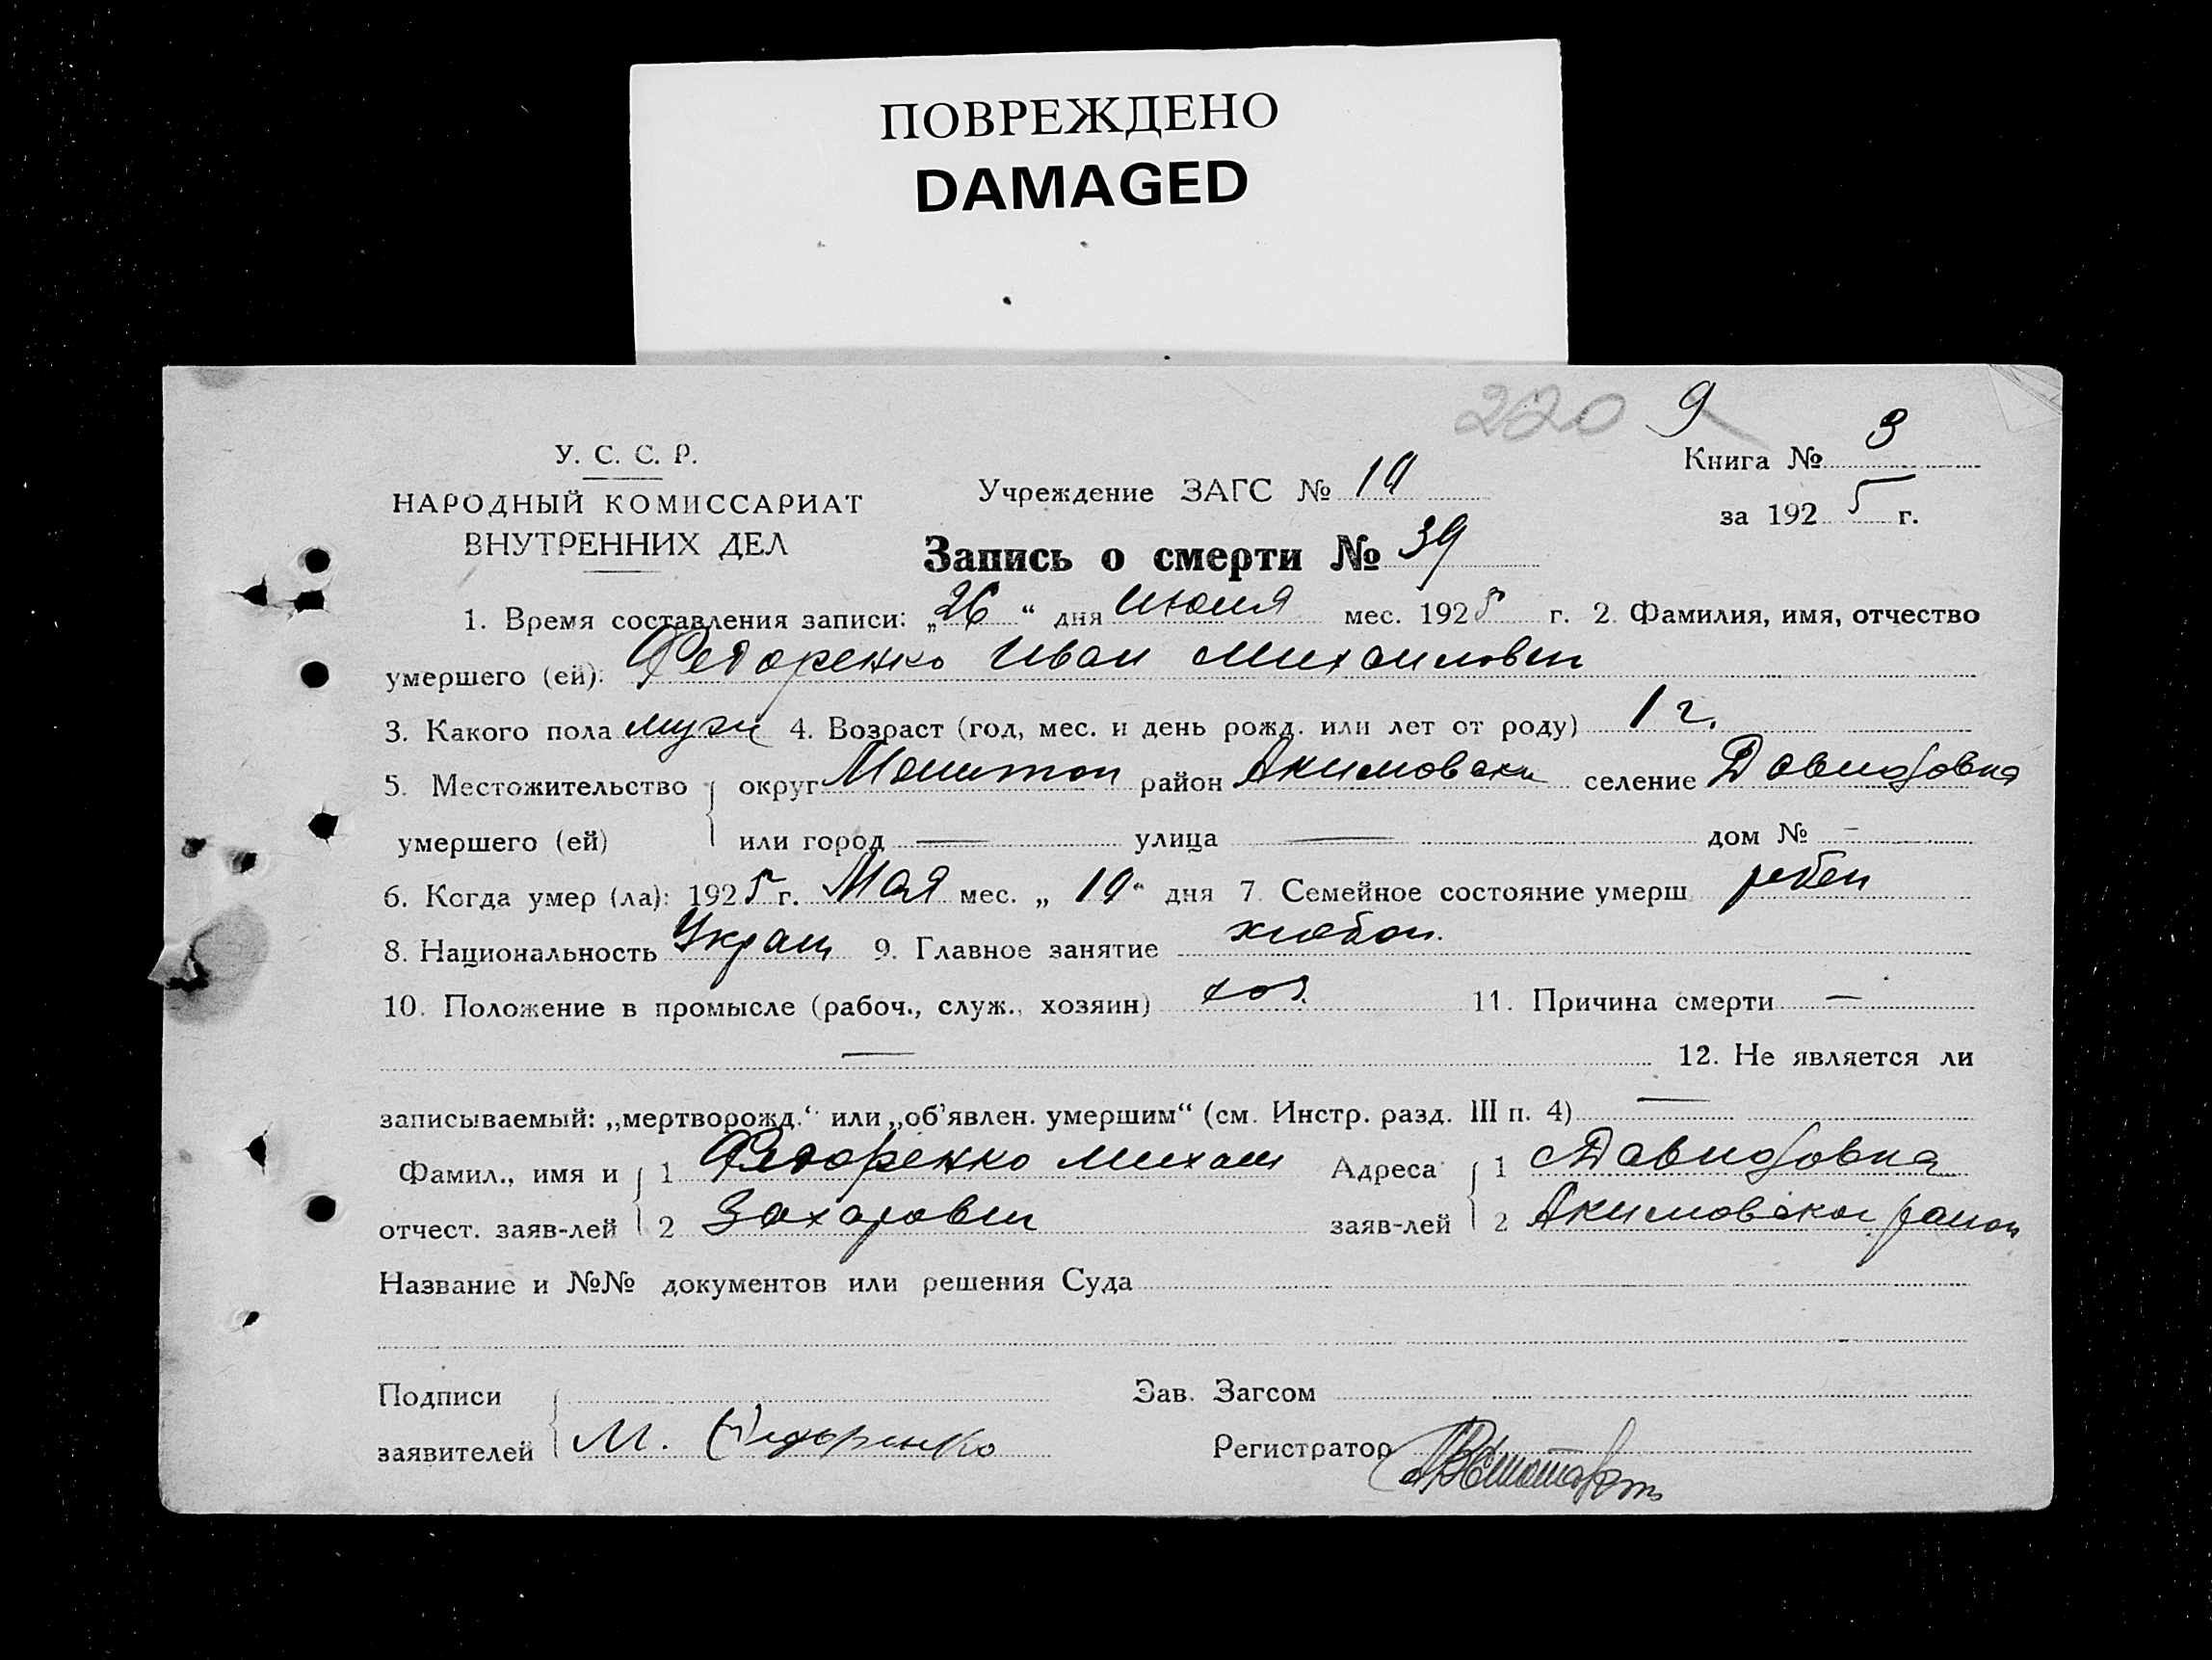 ПОВРЕЖДЕНО
DAMAGED
220 9
У. С. С. Р.
НАРОДНЫЙ КОМИССАРИАТ
ВНУТРЕННИХ ДЕЛ
Учреждение ЗАГС № 19
Книга № 3
за 1925 г.
Запись о смерти № 39
1. Время составления записи: „26“ дня Июня мес. 1925 г. 2. Фамилия, имя, отчество
умершего (ей): Федоренко Иван Михаилович
3. Какого пола муж 4. Возраст (год, мес. и день рожд. или лет от роду) 1 г.
5. Местожительство округ Мелитоп район Акимовски селение Давидовка
умершего (ей) или город — улица — дом № —
6. Когда умер (ла): 1925 г. Мая мес. „19“ дня 7. Семейное состояние умерш. ребен
8. Национальность Украин 9. Главное занятие хлебоп.
10. Положение в промысле (рабоч., служ., хозяин) хоз. 11. Причина смерти —
— 12. Не является ли
записываемый: „мертворожд.“ или „об'явлен. умершим“ (см. Инстр. разд. III п. 4) —
Фамил., имя и 1 Федоренко Михаил Адреса 1 Давидовка
отчест. заяв-лей 2 Захарович заяв-лей 2 Акимовског район
Название и №№ документов или решения Суда
Подписи Зав. Загсом
заявителей М. Федоренко Регистратор